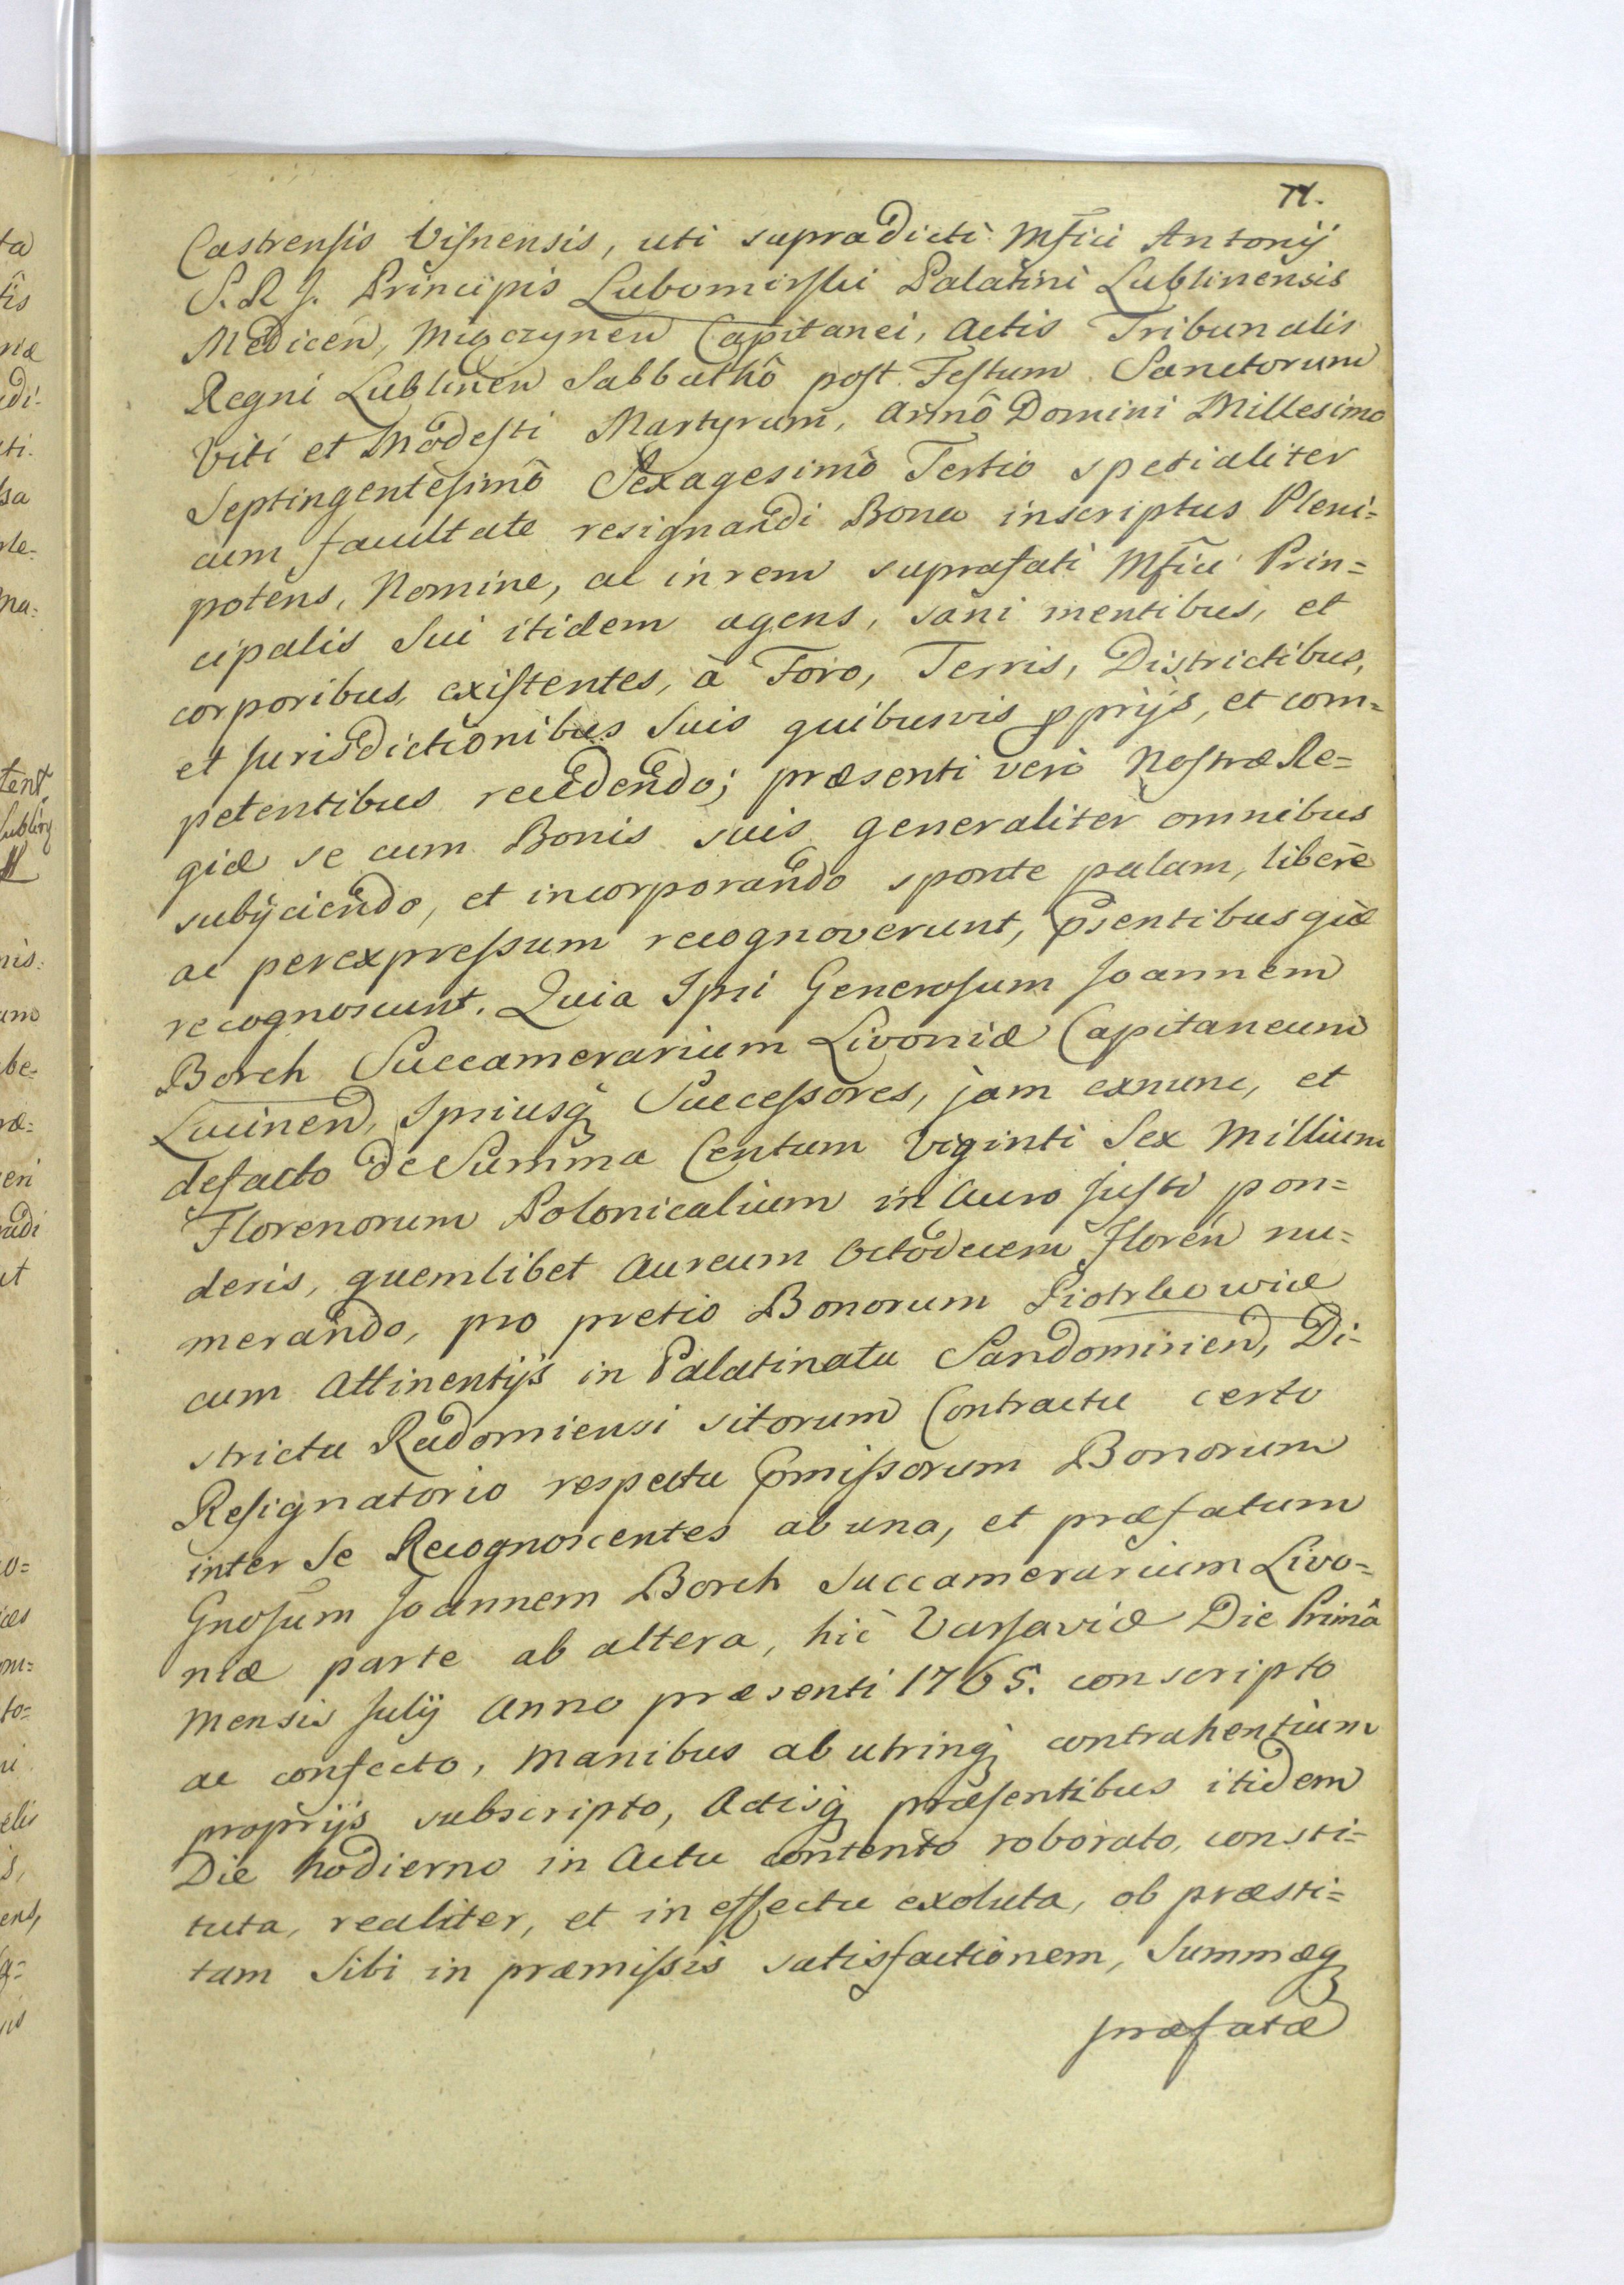 71.
Castrensis Visnensis, uti supradicti Mfici Antonij
S. R. J. Principis Lubomirski Palatini Lublinensis
Medicen, Migczynen Capitanei, Actis Tribunalis
Regni Lublinen Sabbathô post Festum Sanctorum
Viti et Modesti Martyrum, Annô Domini Millesimo
Septingentesimô Sexagesimô Tertio spetialiter
cum facultate resignandi Bona inscriptus Pleni=
potens, Nomine, ac in rem suprafati Mfici Prin=
cipalis Sui itidem agens, sani mentibus, et
corporibus existentes, à Foro, Terris, Districtibus,
et Jurisdictionibus Suis quibusvis pprijs, et com=
petentibus recedendo; præsenti verò Nostræ Re=
giæ se cum Bonis suis generaliter omnibus
subijciendo, et incorporando sponte palam, liberè
ac perexpressum recognoverunt, Psentibusq̃ue
recognoscunt. Quia Ipsi Generosum Joannem
Borch Succamerarium Livoniæ Capitaneum
Lucinen, Ipsiusq̃ Successores, jam exnunc, et
defacto de Summa Centum Viginti Sex Millium
Florenorum Polonicalium in Auro justi pon=
deris, quemlibet Aureum Octodecem Floren nu=
merando, pro pretio Bonorum Piotrkowice
cum Attinentijs in Palatinatu Sandomirien, Di=
strictu Radomiensi sitorum Contractu certo
Resignatorio respectu Pmissorum Bonorum
inter Se Recognoscentes ab una, et præfatum
Gnosum Joannem Borch Succamerarium Livo=
niæ parte ab altera, hic Varsaviæ Die Primâ
Mensis Julij Anno præsenti 1765. conscripto
ac confecto, manibus ab utrinq̃ contrahentium
proprijs subscripto, Actisq̃ præsentibus itidem
Die hodierno in Actu contento roborato, consti=
tuta, realiter, et in effectu exoluta, ob præsti=
tam Sibi in præmissis satisfactionem, Summæq̃
præfatæ